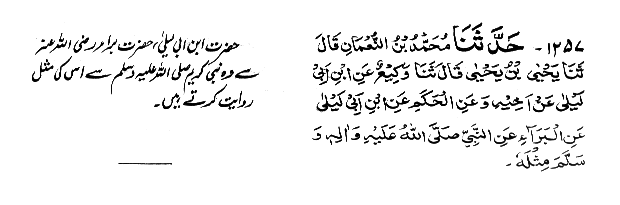 ۱۲۵۷ - حَدَّثَنَا مُحَمَّدُ بْنُ النُّعْمَانِ قَالَ
ثَنَا يَحْيٰى بْنُ يَحْيٰى قَالَ ثَنَا وَكِيْعٌ عَنِ ابْنِ اَبِىْ
لَيْلٰى عَنْ اَخِيْهِ وَعَنِ الْحَكَمِ عَنِ ابْنِ اَبِىْ لَيْلٰى
عَنِ الْبَرَآءِ عَنِ النَّبِىِّ صَلَّى اللهُ عَلَيْهِ وَاٰلِهٖ وَ
سَلَّمَ مِثْلَهٗ -
حضرت ابن ابی لیلیٰ، حضرت براء رضی اللہ عنہ
سے وہ نبی کریم صلی اللہ علیہ وسلم سے اس کی مثل
روایت کرتے ہیں۔